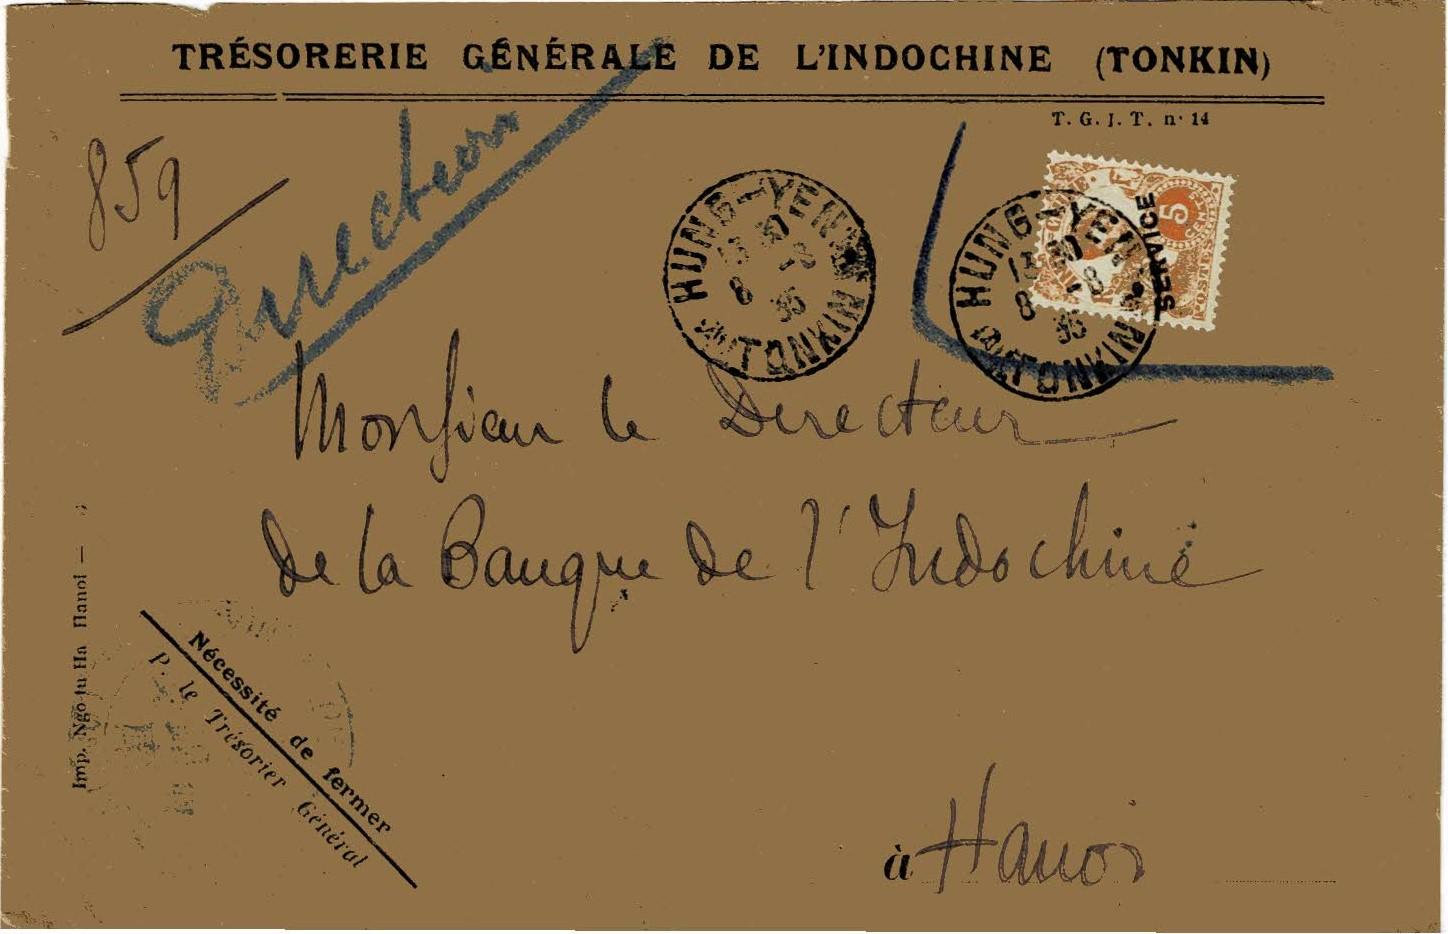 TRÉSORERIE GÉNÉRALE DE L'INDOCHINE (TONKIN)
T. G. I. T. n° 14
859
Directeur
HUNG-YEN
13 30
8 -8
35
TONKIN
HUNG-YEN
13 30
8 -8
35
TONKIN
5
CENTS
POSTES
SERVICE
Monsieur le Directeur
de la Banque de l'Indochine
à Hanoi
Nécessité de fermer
P. le Trésorier Général
Imp. Ngo-tu Ha Hanoi —